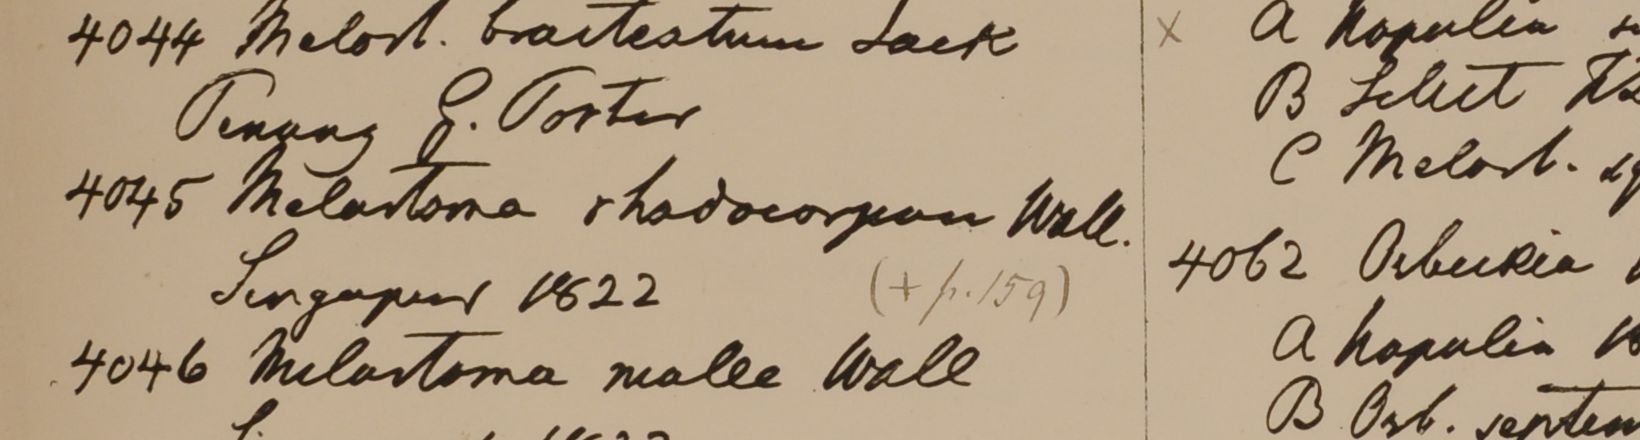 4044 Melast. bracteatum Jack
Penang G. Porter
4045 Melastoma rhodocarpum Wall.
Singapur 1822 (+ p. 159)
4046 Melastoma malle Wall
1822
x A Napalia
B Silhet
C Melast.
4062 Osbeckia
A Napalia
B Osb.